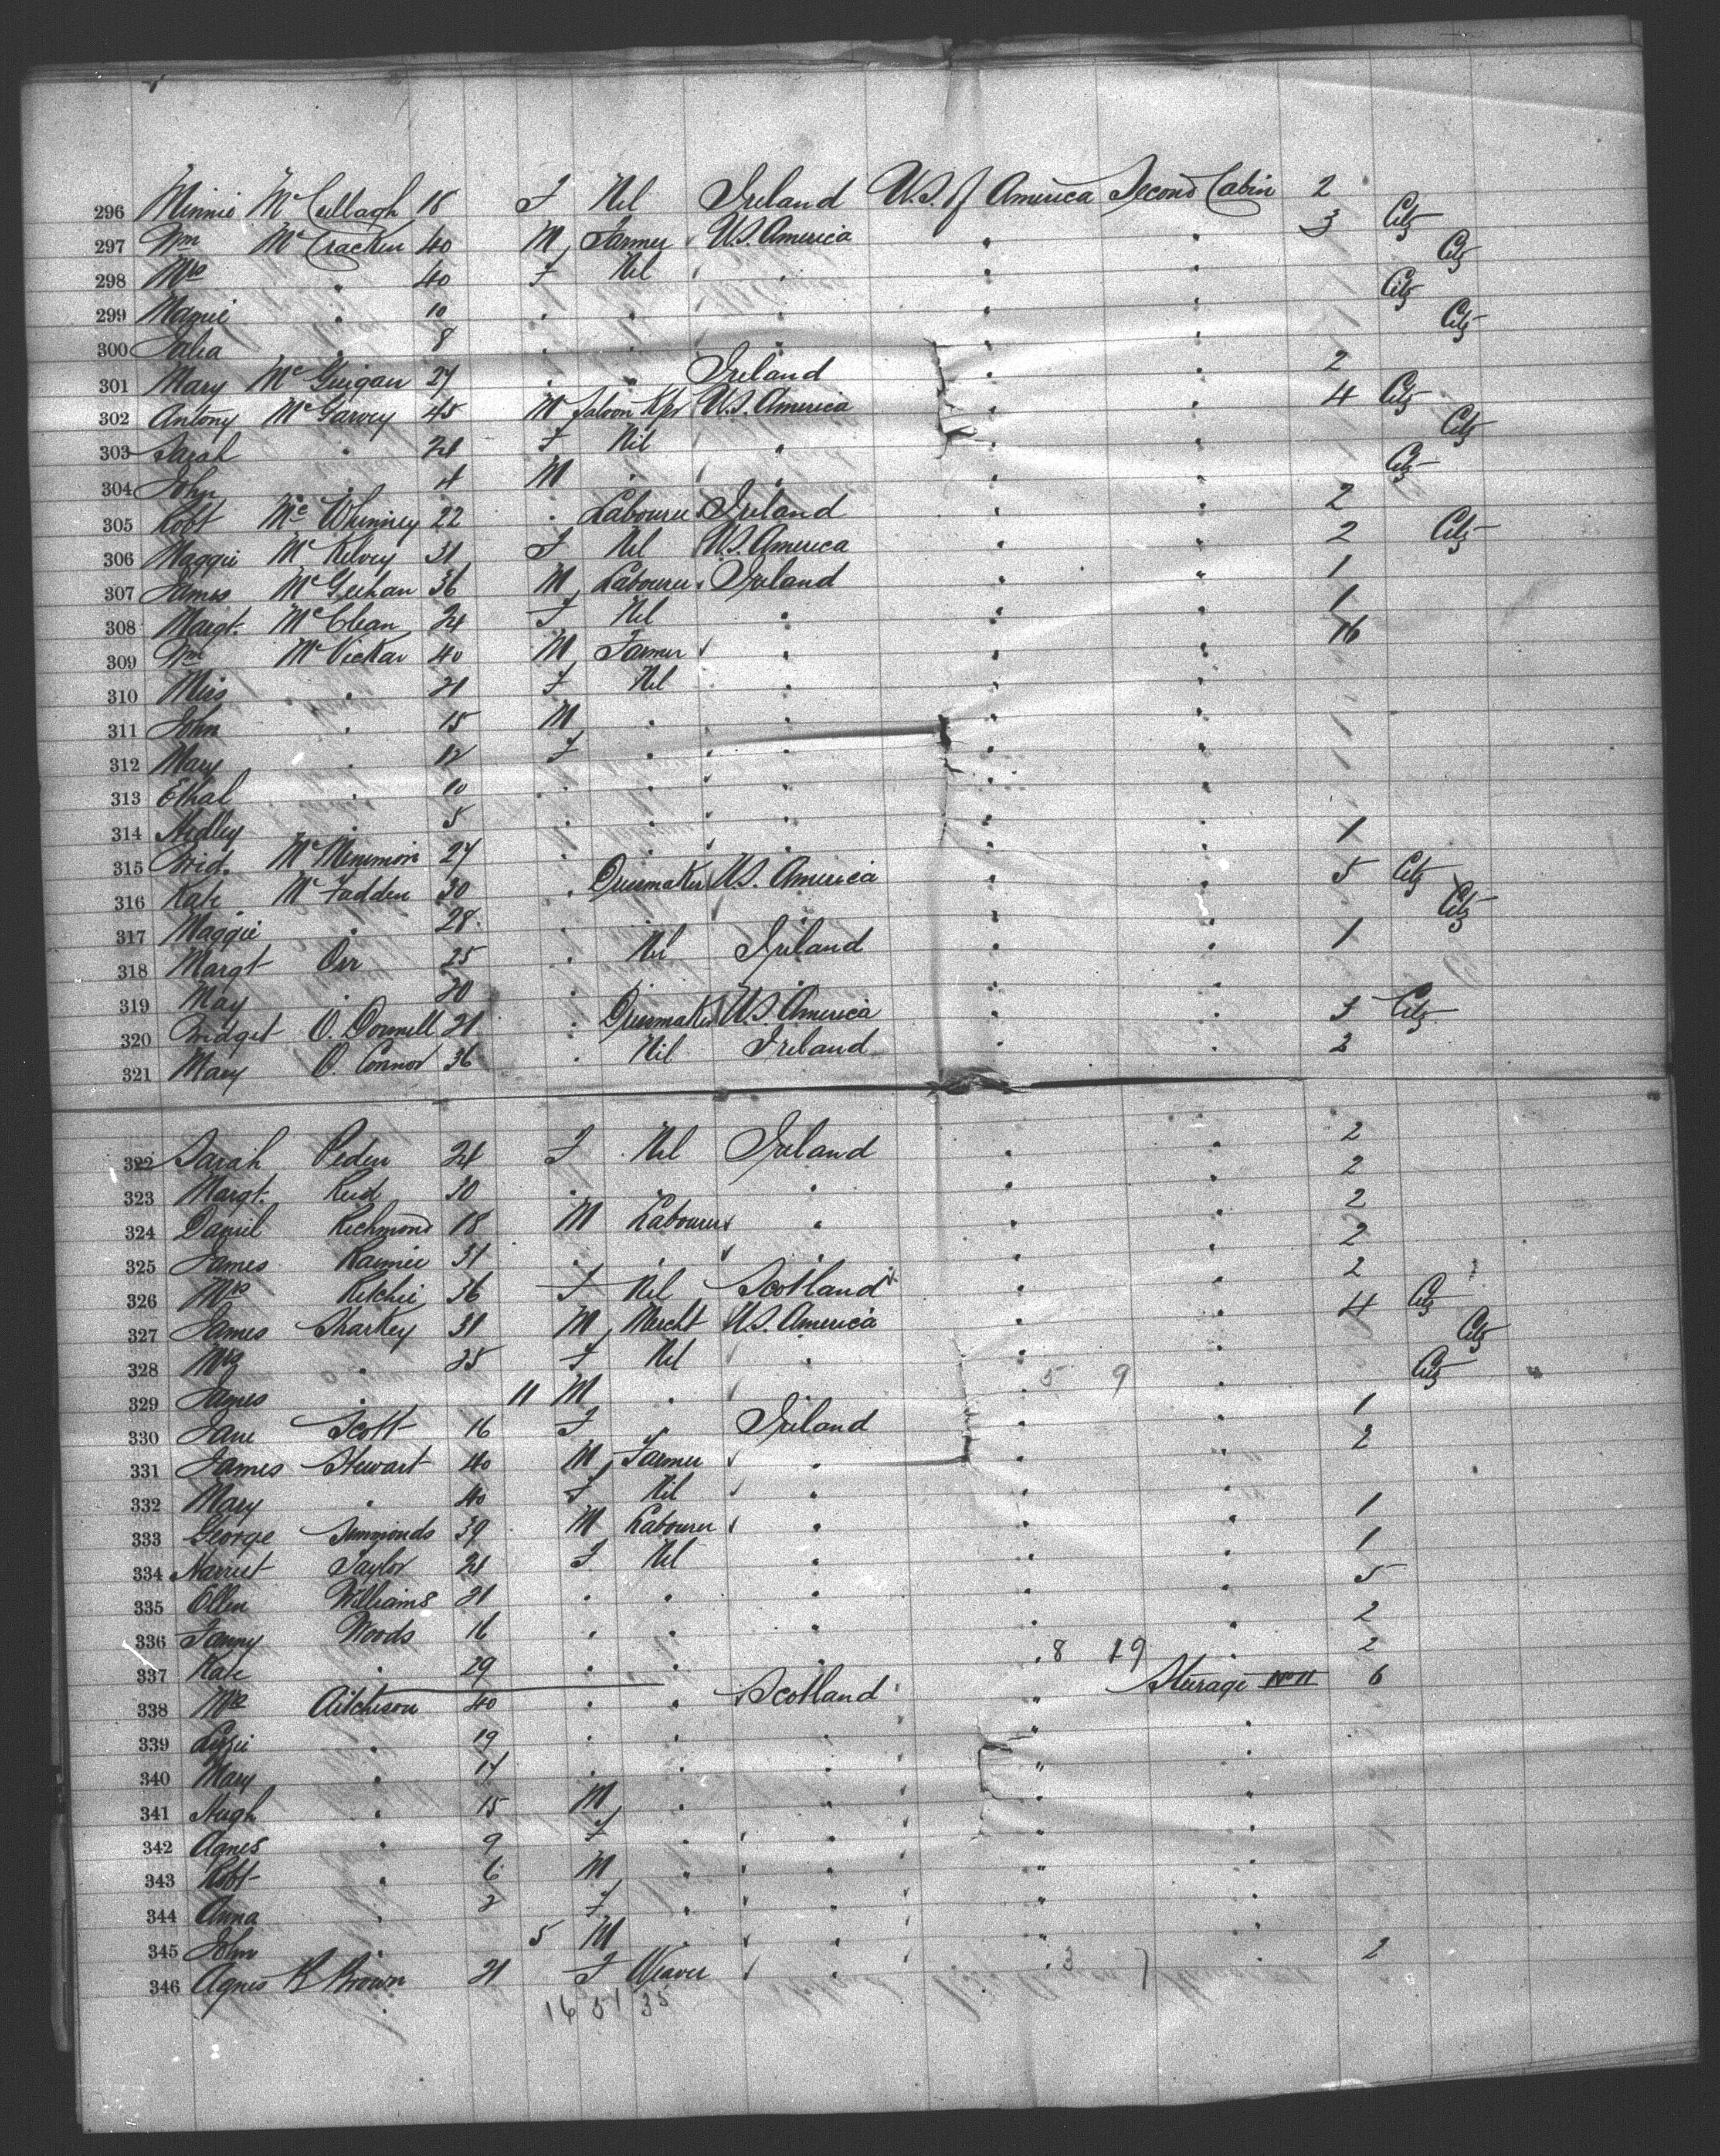 296 Minnie McCullagh 18 F Nil Ireland U.S. of America Second Cabin 2
297 Wm McCracken 40 M Farmer U.S. America " " 3 Citz
298 Mrs " 40 F Nil " " " Citz
299 Mamie " 10 " " " " " Citz
300 " 8 " " " " " Citz
301 Mary McGuigan 27 " " Ireland " " 2
302 Antony McGarvey 45 M Saloon Kpr U.S. America " " 4 Citz
303 Sarah " 24 F Nil " " " Citz
304 John " 4 M " " " " Citz
305 Robt McWhinney 22 " Labourer Ireland " " 2
306 Maggie McKelvey 31 F Nil U.S. America " " 2 Citz
307 James McGeehan 36 M Labourer Ireland " " 1
308 Margt. McClean 24 F Nil " " " 1
309 Wm McVickar 40 M Farmer " " " 16
310 Miss " 21 F Nil " " "
311 John " 15 M " " " "
312 Mary " 12 F " " " "
313 Ethal " 10 " " " " "
314 Hedley " 5 " " " " "
315 Brid. McMenimon 27 " " " " " 1
316 Kate McFadden 30 " Dressmaker U.S. America " " 5 Citz
317 Maggie " 28 " " " " " Citz
318 Margt Orr 25 " Nil Ireland " " 1
319 May " 20 " " " " "
320 Bridget O. Donnell 21 " Dressmaker U.S. America " " 3 Citz
321 Mary O. Connor 36 " Nil Ireland " " 2
322 Sarah Peden 24 F Nil Ireland " " 2
323 Margt. Reid 30 " " " " " 2
324 Daniel Richmond 18 M Labourer " " " 2
325 James Ramie 31 " " " " " 2
326 Mrs Ritchie 36 F Nil Scotland " " 2
327 James Sharkey 31 M Mercht U.S. America " " 4 Citz
328 Mrs " 25 F Nil " " " Citz
329 James " 11 M " " " 5 9 " Citz
330 Jane Scott 16 F " Ireland " " 1
331 James Stewart 40 M Farmer " " " 2
332 Mary " 40 F Nil " " "
333 George Simmonds 39 M Labourer " " " 1
334 Harriet Taylor 24 F Nil " " " 1
335 Ellen Williams 21 " " " " " 5
336 Fanny Woods 16 " " " " " 2
337 Kate " 29 " " " " 8 19 " 2
338 Mrs Aitchison 40 " " Scotland " Steerage No 11 6
339 Lizzie " 19 " " " " "
340 Mary " 17 " " " " "
341 Hugh " 15 M " " " "
342 Agnes " 9 F " " " "
343 Robt " 6 M " " " "
344 Anna " 2 F " " " "
345 John " 5 M " " " "
346 Agnes B Brown 21 F Weaver " " 3 7 " 2
16 51 35